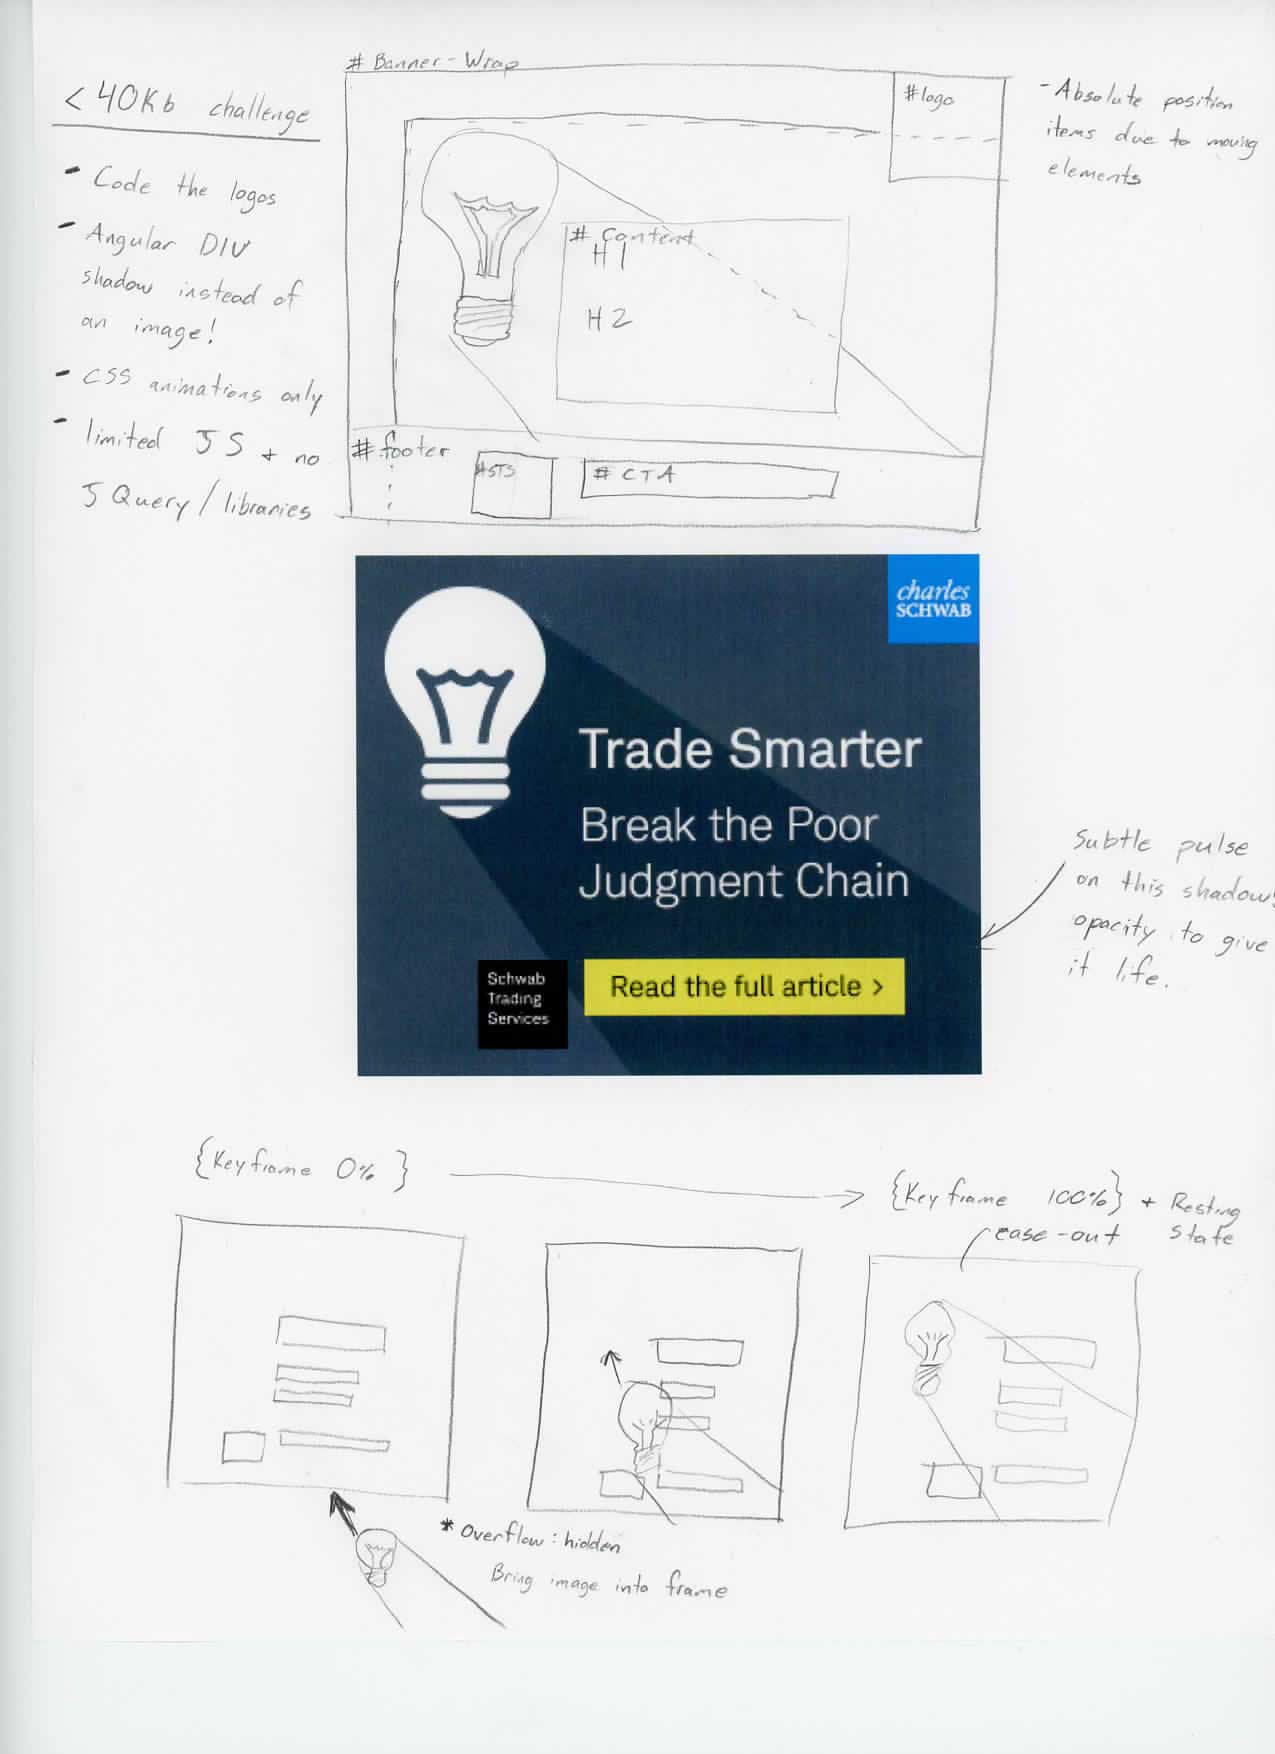 < 40Kb challenge
- Code the logos
- Angular DIV
shadow instead of
an image!
- CSS animations only
- limited JS + no
JQuery / libraries
# Banner-Wrap
# logo
# Content
H1
H2
# footer
#STS
# CTA
- Absolute position
items due to moving
elements
charles
SCHWAB
Trade Smarter
Break the Poor
Judgment Chain
Schwab
Trading
Services
Read the full article >
Subtle pulse
on this shadows
opacity to give
it life.
{Keyframe 0%}
{Keyframe 100%} + Resting
state
ease-out
* Overflow: hidden
Bring image into frame